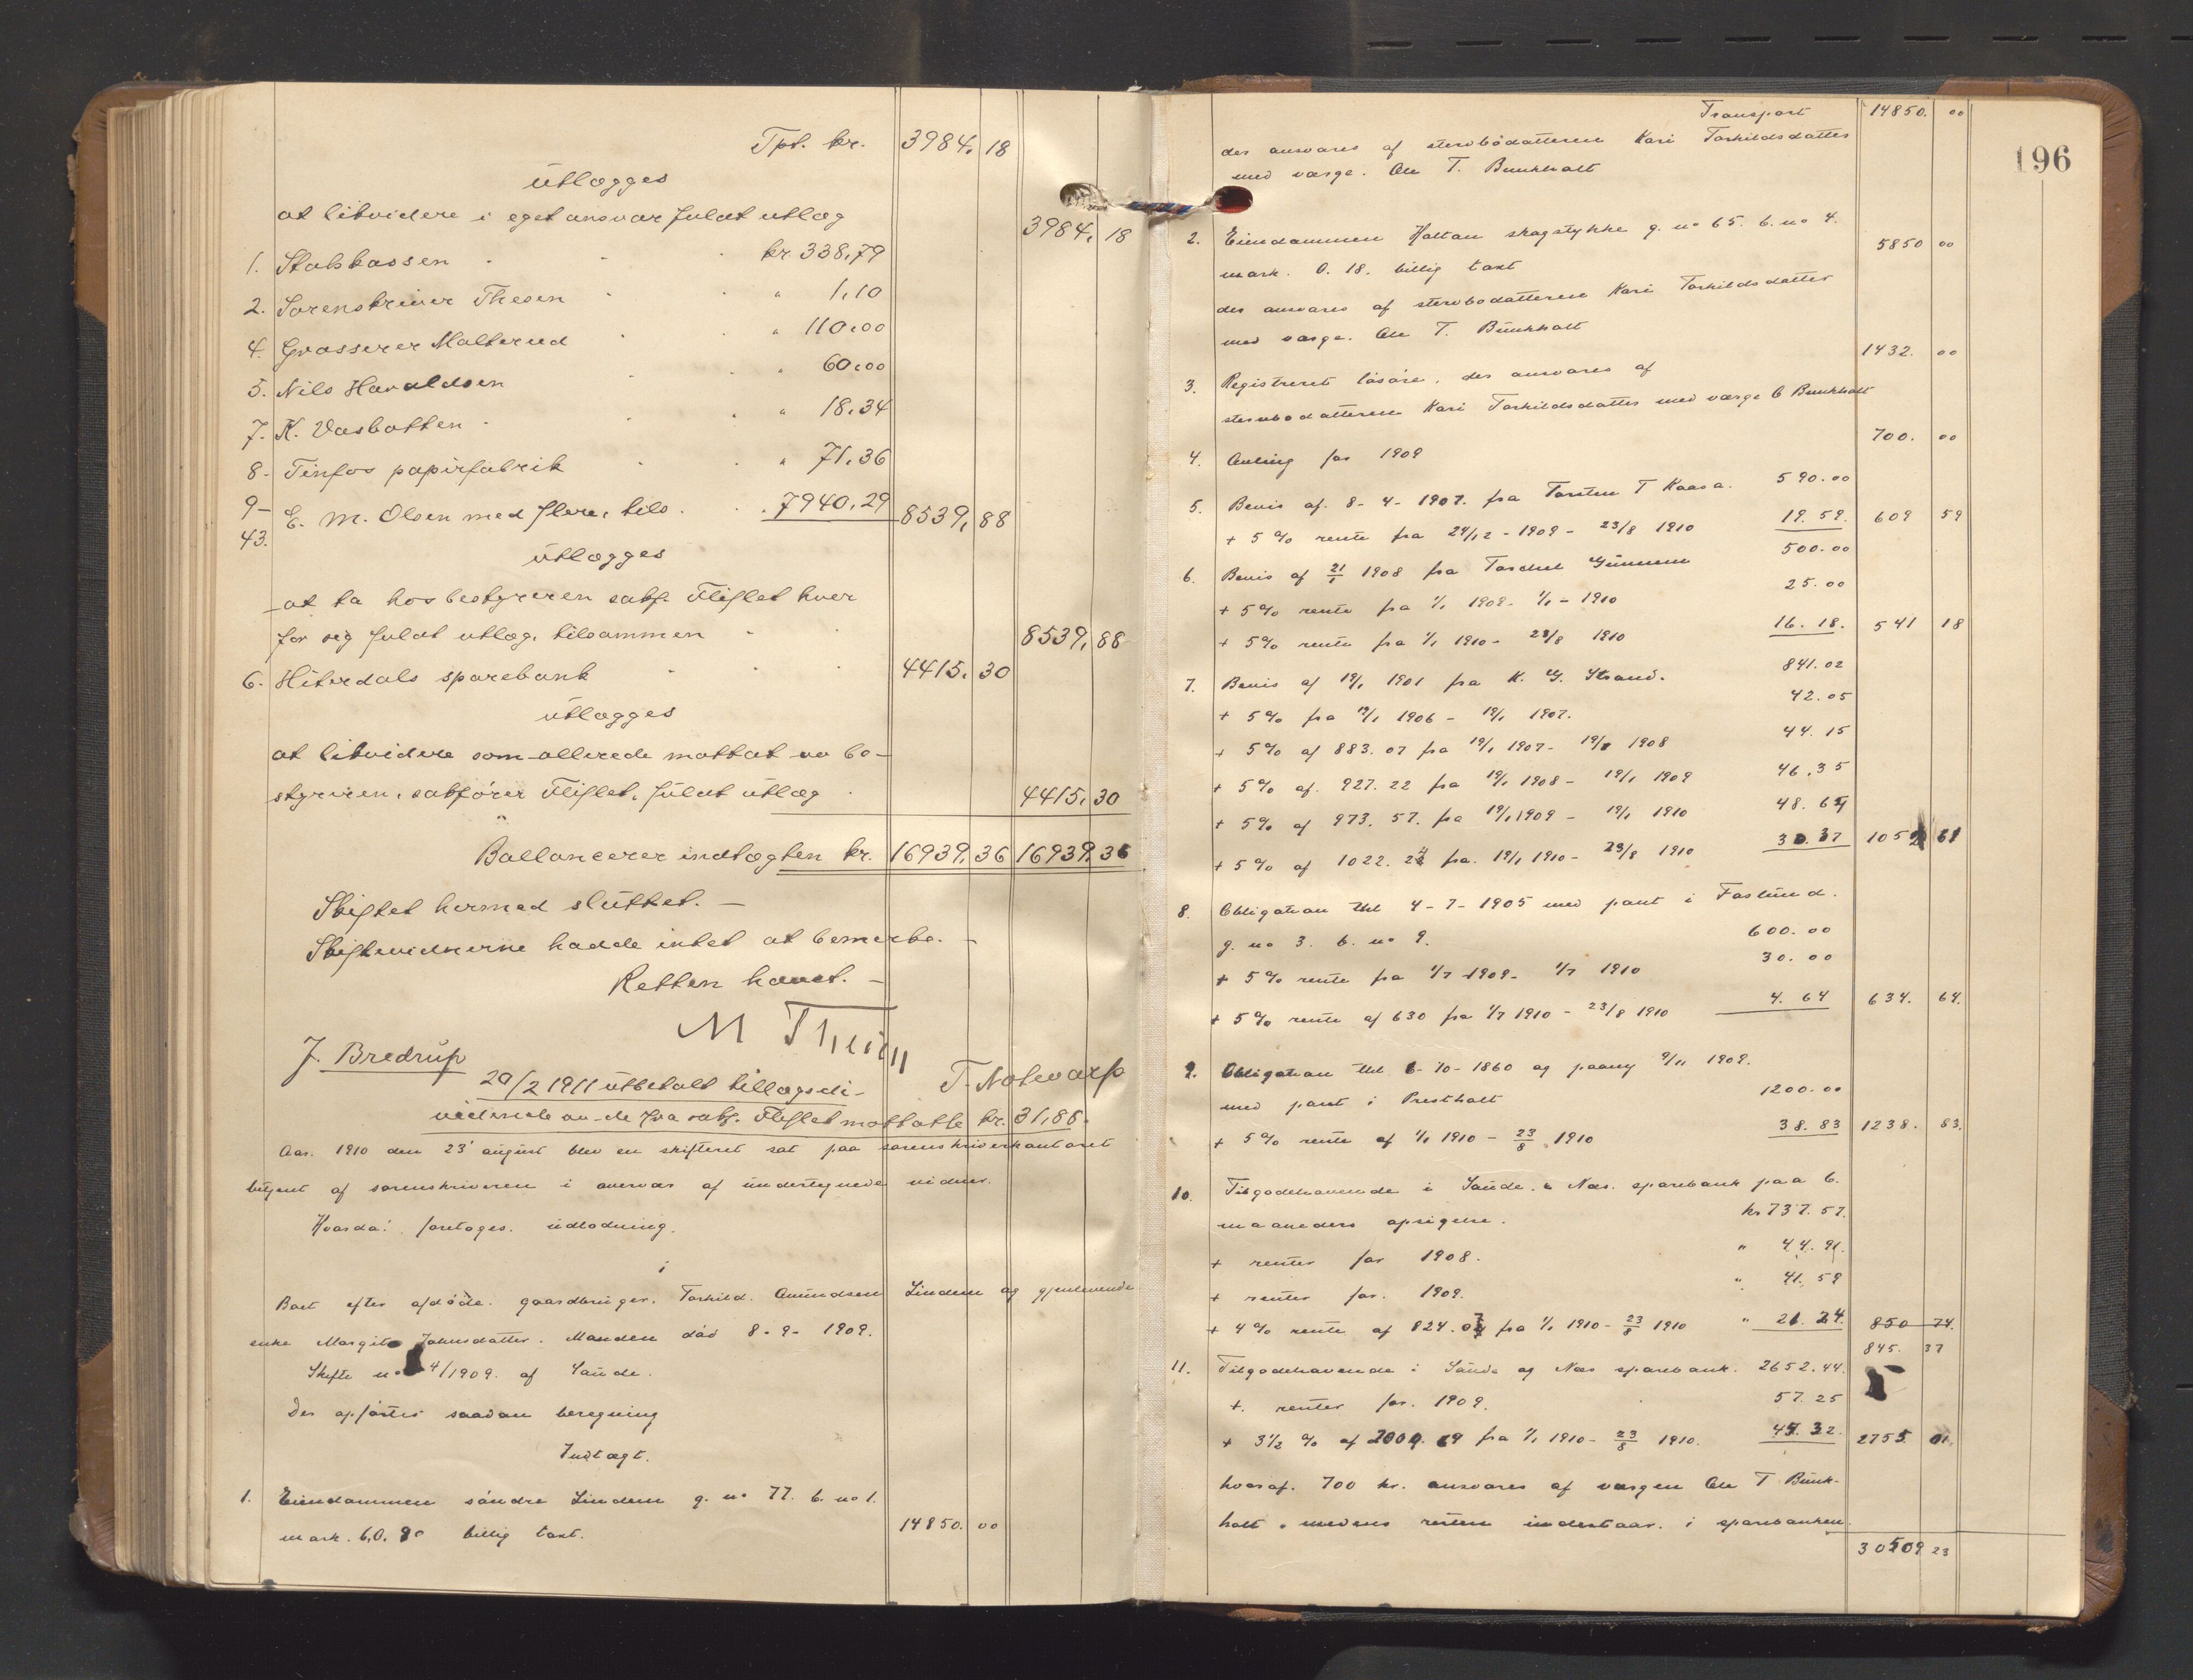 Tpt. kr. 3984, 18
utlægges
at likvidere i eget ansvar fuldt utlæg 3984, 18
1. Statskassen kr. 338,79
2. Sorenskriver Thesen " 1,10
4. Grosserer Malterud " 110,00
5. Nils Haraldsen " 60,00
7. K. Vasbotten " 18,34
8. Tinfos papirfabrik " 71,36
9- E. M. Olsen med flere, tils. 7940,29 8539, 88
43.
utlægges
at ta hos bestyreren sakf. Fliflet hver
for sig fuldt utlæg, tilsammen 8539, 88
6. Hiterdals sparebank 4415, 30
utlægges
at likvidere som allerede mottat av bo-
styreren, sakfører Fliflet, fuldt utlæg 4415, 30
Ballancerer indtægten kr. 16939, 36 16939, 36
Skiftet hermed sluttet. —
Skiftevidnerne hadde intet at bemerke. —
Retten hævet. —
M Thesen
J. Bredrup
T. Notevarp
20/2 1911 utbetalt tillægsdi-
vidende av de fra sakf. Fliflet mottatte kr. 31,88.
Aar. 1910 den 23' august blev en skifteret sat paa sorenskriverkontoret
betjent af sorenskriveren i overvær af undertegnede vidner.
Hvorda: foretoges. udlodning.
i
Boet efter afdøde. gaardbruger. Torkild. Amundsen Lindem og gjenlevende
enke Margit Johnsdatter. Manden død 8-9-1909.
Skifte no 4/1909. af Saude.
Der opførtes saadan beregning
Indtægt.
1. Eiendommen søndre Lindem g. no 77. b. no 1.
mark. 6,0.80 billig taxt. 14850. 00
196
Transport 14850. 00
der ansvares af stervbodatteren Kari Torkildsdatter
med værge. Ole T. Bunkholt
2. Eiendommen Holtan skogstykke g. no 65. b. no 4.
mark. 0.18. billig taxt 5850 00
der ansvares af stervbodatteren Kari Torkildsdatter
med værge. Ole T. Bunkholt
3. Registreret løsøre. der ansvares af 1432. 00
stervbodatteren Kari Torkildsdatter med værge O Bunkholt
4. Avling for 1909 700. 00
5. Bevis af. 8-4-1907. fra Torsten T Kaasa. 590.00
+ 5 % rente fra 24/12-1909-23/8 1910 19.59. 609 59
6. Bevis af 21/1 1908 fra Torchel Gunnem 500.00
+ 5 % rente fra 1/1 1909-1/1-1910 25.00
+ 5 % rente fra 1/1 1910-23/8 1910 16.18. 541 18
7. Bevis af 19/1 1901 fra K. G. Strand. 841.02
+ 5 % fra 19/1 1906-19/1 1907. 42.05
+ 5 % af 883.07 fra 19/1 1907-19/1 1908 44.15
+ 5 % af. 927.22 fra 19/1 1908-19/1 1909 46.35
+ 5 % af 973.57. fra 19/1 1909-19/1 1910 48.64
+ 5 % af 1022. fra. 19/1 1910-23/8 1910 30.37 1052 61
8. Obligation thl 4-7-1905 med pant i Foslund.
g. no 3. b. no 9. 600.00
+ 5 % rente fra 1/7 1909-1/7 1910 30.00
+ 5 % rente af 630 fra 1/7 1910-23/8 1910 4.64 634. 64.
9. Obligation thl 6-10-1860 og paany 9/11 1909.
med pant i Prestholt 1200.00
+ 5 % rente af 1/1 1910-23/8 1910 38.83 1238. 83.
10. Tilgodehavende i Saude. & Næs. sparebank paa 6.
maaneders opsigelse. kr 737.57.
+ renter for 1908. " 44.91.
+ renter for. 1909. " 41.59
+ 4 % rente af 824.07 fra 1/1 1910-23/8 1910 " 21.24. 850 74.
845. 37
11. Tilgodehavende i Saude og Næs sparebank. 2652.44.
+. renter for. 1909. 57.25
+ 3½ % af 2009.69 fra 1/1 1910-23/8 1910. 45.32. 2755. 01.
hvoraf. 700 kr. ansvares af værgen Ole T Bunk-
holt. medens resten indestaar. i sparebanken.
30509 23